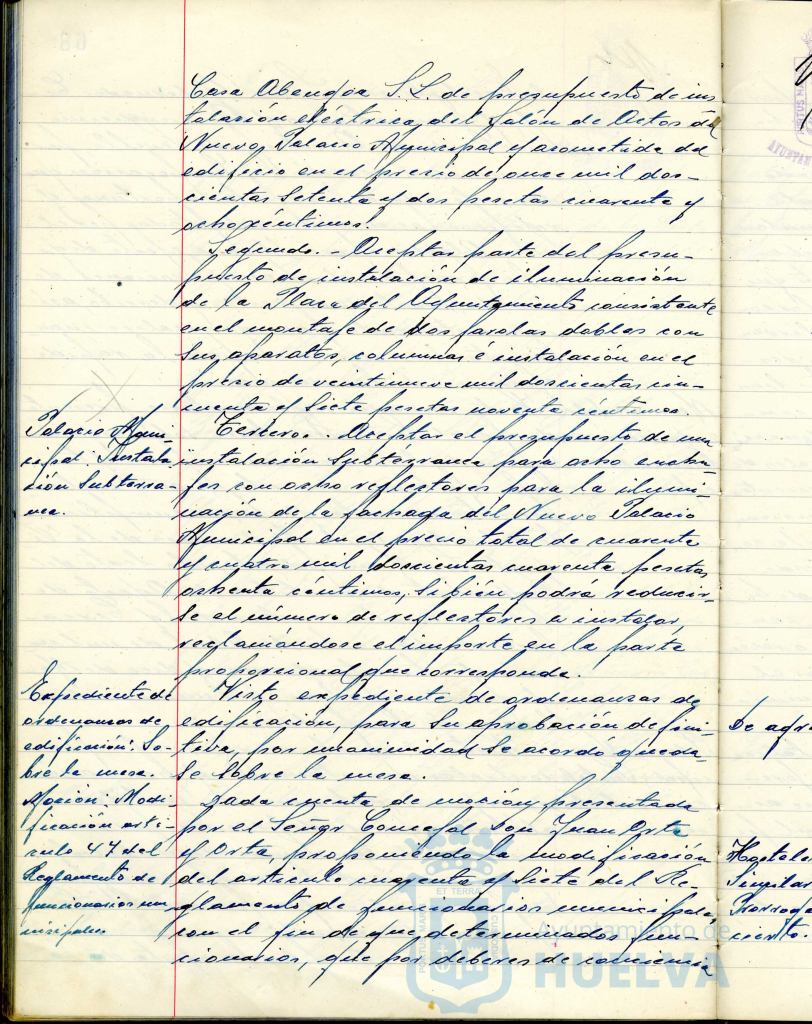 Casa Abengoa S.L. de presupuesto de ins
talación eléctrica del Salón de Actos del
Nuevo Palacio Municipal y acometida del
edificio en el precio de once mil dos-
cientas setenta y dos pesetas cuarenta y
ocho céntimos.
Segundo. - Aceptar parte del presu-
puesto de instalación de iluminación
de la Plaza del Ayuntamiento consistente
en el montaje de dos farolas dobles con
sus aparatos, columnas é instalación en el
precio de veintinueve mil doscientas cin-
cuenta y siete pesetas noventa céntimos.
Palacio Muni-
cipal: Instala
ción Subterrá-
nea.
Tercero. - Aceptar el presupuesto de una
instalación subterranea para ocho enchu-
fes con ocho reflectores para la ilumi-
nación de la fachada del Nuevo Palacio
Municipal en el precio total de cuarenta
y cuatro mil doscientas cuarenta pesetas
ochenta céntimos, si bién podrá reducir-
se el número de reflectores a instalar,
reclamándose el importe en la parte
proporcional que corresponda.
Expediente de
ordenanzas de
edificación: So-
bre la mesa.
Visto expediente de ordenanzas de
edificación, para su aprobación defini-
tiva, por unanimidad se acordó queda-
se sobre la mesa.
Moción: Modi-
ficación artí-
culo 47 del
Reglamento de
funcionarios mu
nicipales
Dada cuenta de moción presentada
por el Señor Concejal Don Juan Orta
y Orta, proponiendo la modificación
del articulo cuarenta y siete del Re-
glamento de funcionarios municipales,
con el fin de que determinados fun-
cionarios, que por deberes de conciencia
Ayuntamiento de
HUELVA
PORTUS MARIS
ET TERRAE
CUSTODIA